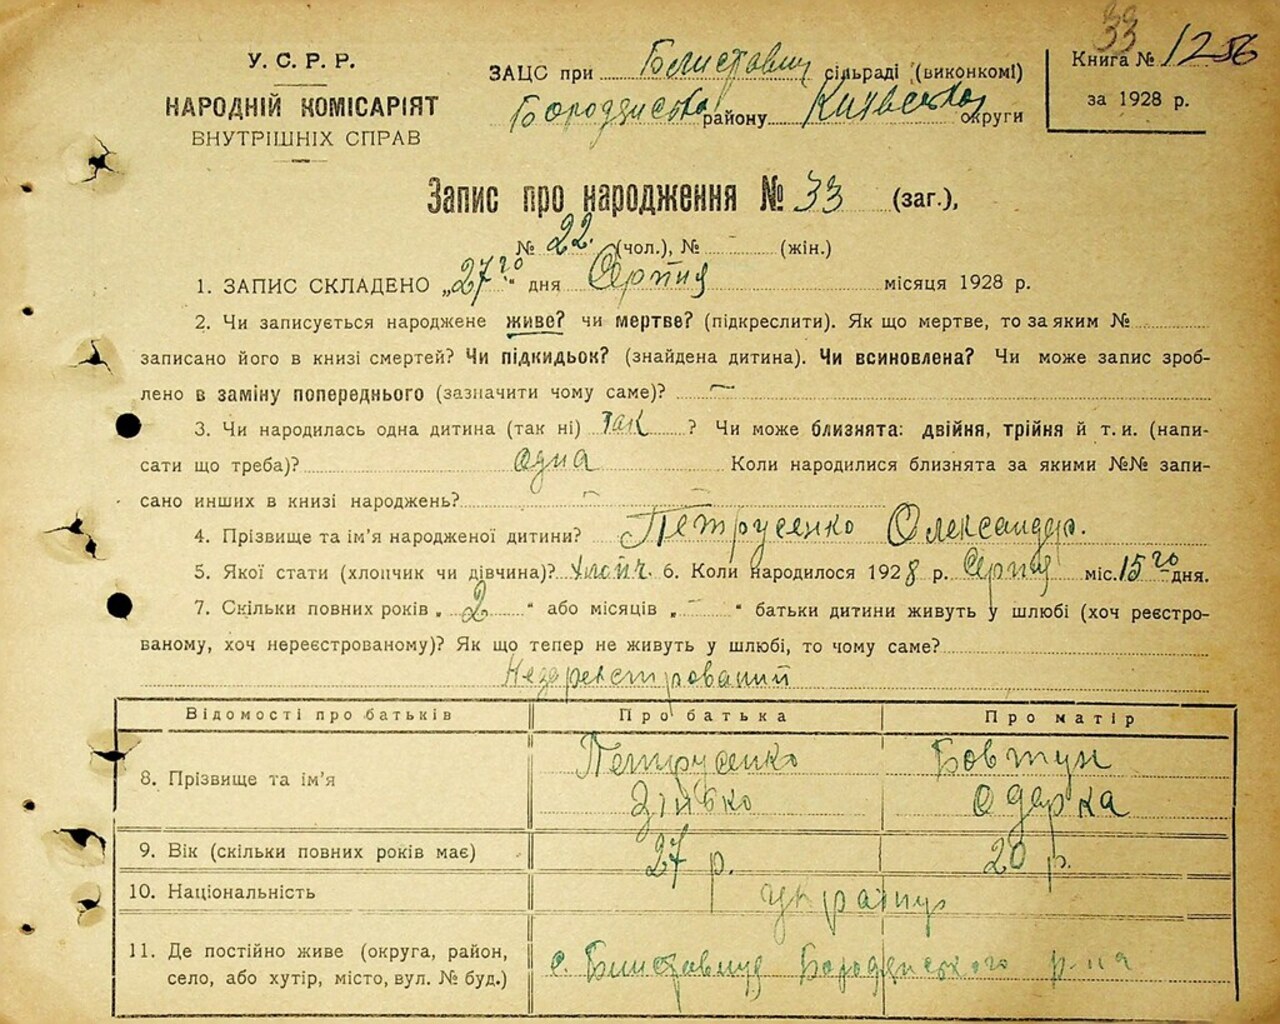 33
У. С. Р. Р.
НАРОДНІЙ КОМІСАРІЯТ
ВНУТРІШНІХ СПРАВ
ЗАЦС при Блиставиц сільраді (виконкомі)
Бородянська району Київська округи
Книга № 1256
за 1928 р.
Запис про народження № 33 (заг.),
№ 22. (чол.), № — (жін.)
1. ЗАПИС СКЛАДЕНО „27го“ дня Серпня місяця 1928 р.
2. Чи записується народжене живе? чи мертве? (підкреслити). Як що мертве, то за яким №
записано його в книзі смертей? Чи підкидьок? (знайдена дитина). Чи всиновлена? Чи може запис зроб-
лено в заміну попереднього (зазначити чому саме)? —
3. Чи народилась одна дитина (так ні) так ? Чи може близнята: двійня, трійня й т. и. (напи-
сати що треба)? одна Коли народилися близнята за якими №№ запи-
сано инших в книзі народжень? — —
4. Прізвище та ім'я народженої дитини? Петрусенко Олександр.
5. Якої стати (хлопчик чи дівчина)? хлопч. 6. Коли народилося 1928 р. Серпня міс. 15го дня.
7. Скільки повних років „ 2 “ або місяців „ — “ батьки дитини живуть у шлюбі (хоч реєстро-
ваному, хоч нереєстрованому)? Як що тепер не живуть у шлюбі, то чому саме?
Незареєстрований
Відомості про батьків Про батька Про матір
8. Прізвище та ім'я Петрусенко Зінько Бовтун Одарка
9. Вік (скільки повних років має) 27 р. 20 р.
10. Національність українці
11. Де постійно живе (округа, район,
село, або хутір, місто, вул. № буд.) с. Блиставиця Бородянського р-на